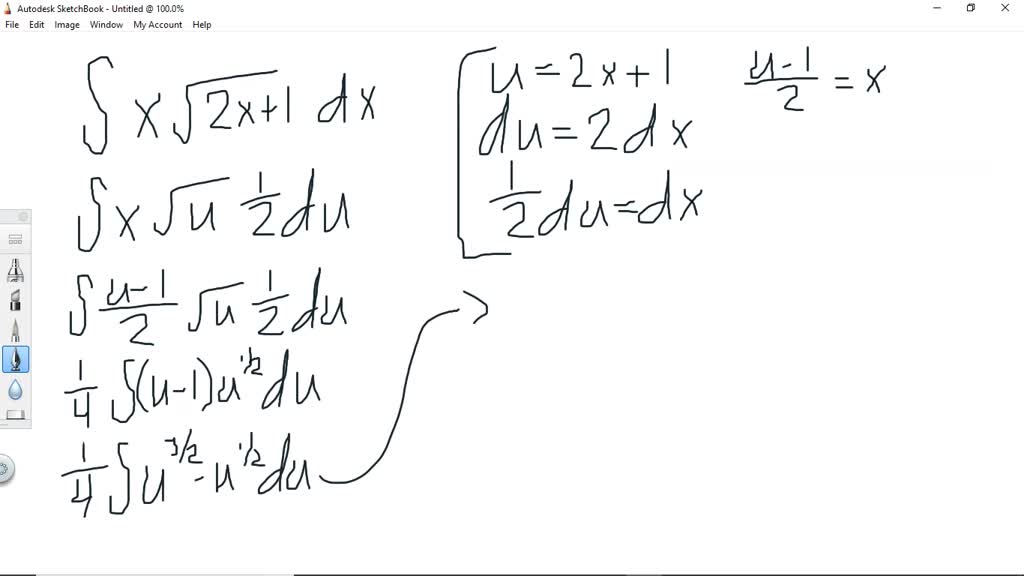 Autodesk SketchBook - Untitled @ 100.0%
File Edit Image Window My Account Help
∫ x √(2x+1) dx
∫ x √u 1/2 du
∫ (u-1)/2 √u 1/2 du
1/4 ∫ (u-1) u^(1/2) du
1/4 ∫ u^(3/2) - u^(1/2) du
u = 2x+1
du = 2dx
1/2 du = dx
(u-1)/2 = x